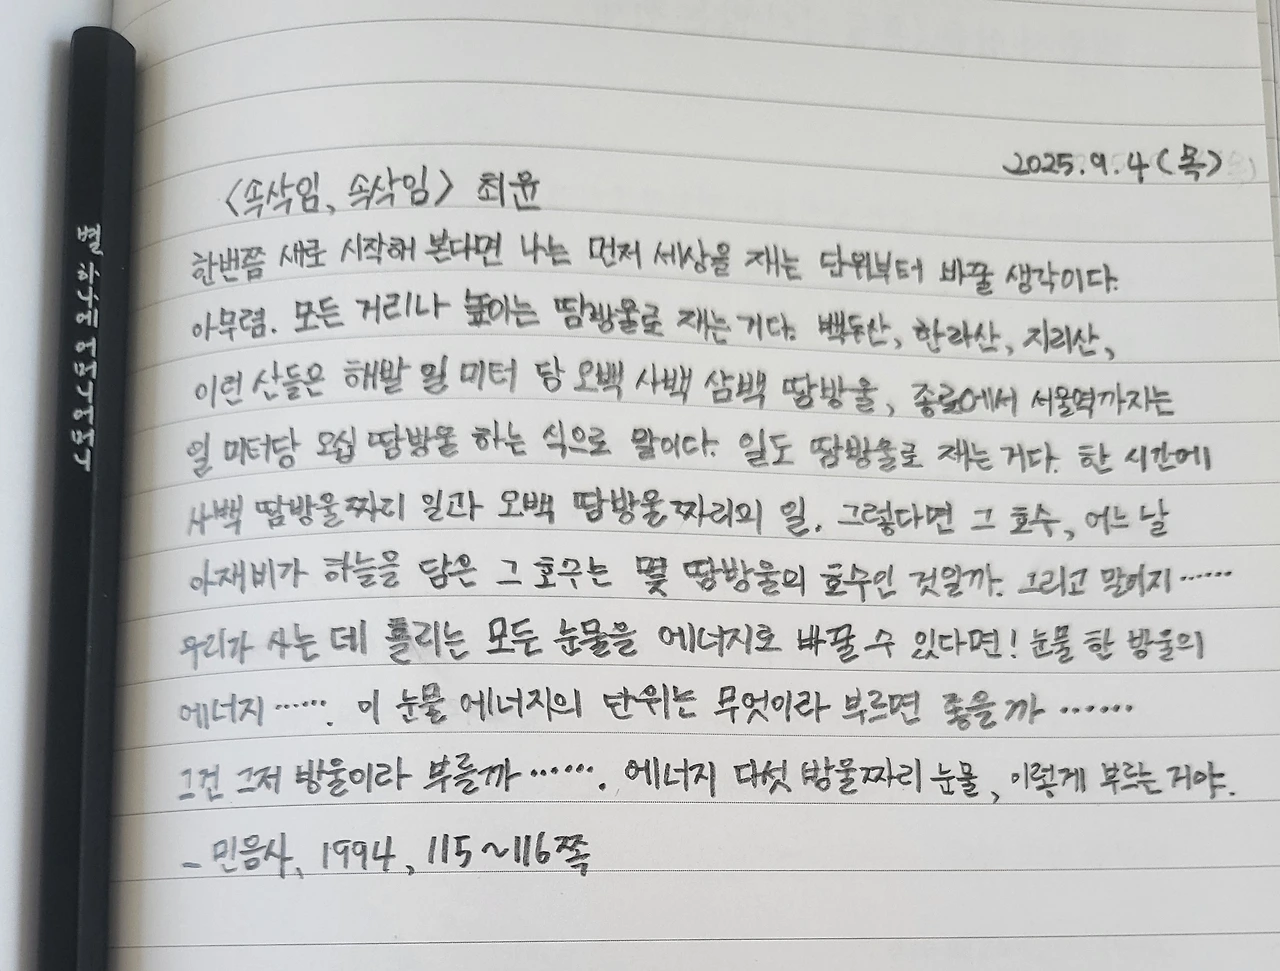 2025.9.4(목)
<속삭임, 속삭임> 최윤
한번쯤 새로 시작해 본다면 나는 먼저 세상을 재는 단위부터 바꿀 생각이다.
아무렴. 모든 거리나 높이는 땀방울로 재는 거다. 백두산, 한라산, 지리산,
이런 산들은 해발 일 미터 당 오백 사백 삼백 땀방울, 종로에서 서울역까지는
일 미터당 오십 땀방울 하는 식으로 말이다. 일도 땀방울로 재는 거다. 한 시간에
사백 땀방울짜리 일과 오백 땀방울짜리의 일. 그렇다면 그 호수, 어느 날
아재비가 하늘을 담은 그 호수는 몇 땀방울의 호수인 것일까. 그리고 말이지……
우리가 사는 데 흘리는 모든 눈물을 에너지로 바꿀 수 있다면! 눈물 한 방울의
에너지……. 이 눈물 에너지의 단위는 무엇이라 부르면 좋을까……
그건 그저 방울이라 부를까……. 에너지 다섯 방울짜리 눈물, 이렇게 부르는 거야.
- 민음사, 1994, 115~116쪽
별 하나에 어머니 어머니